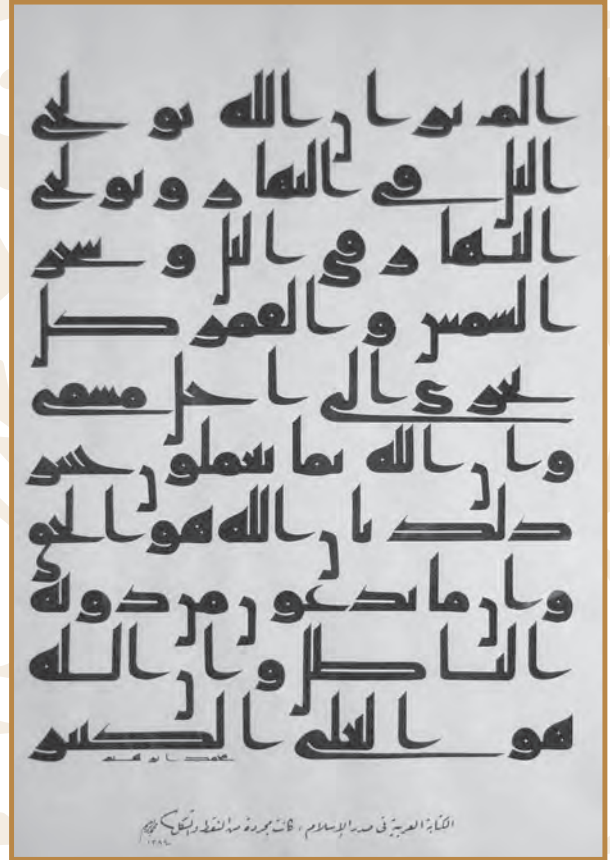 الم تر ان الله يولج
الليل في النهار ويولج
النهار في الليل وسخر
الشمس والقمر كل
يجري الى اجل مسمى
وان الله بما تعملون خبير
ذلك بان الله هو الحق
وان ما يدعون من دونه
الباطل وان الله
هو العلي الكبير
محمد ابرهيم
الكتابة العربية في صدر الإسلام ، كانت مجردة من النقط والشكل